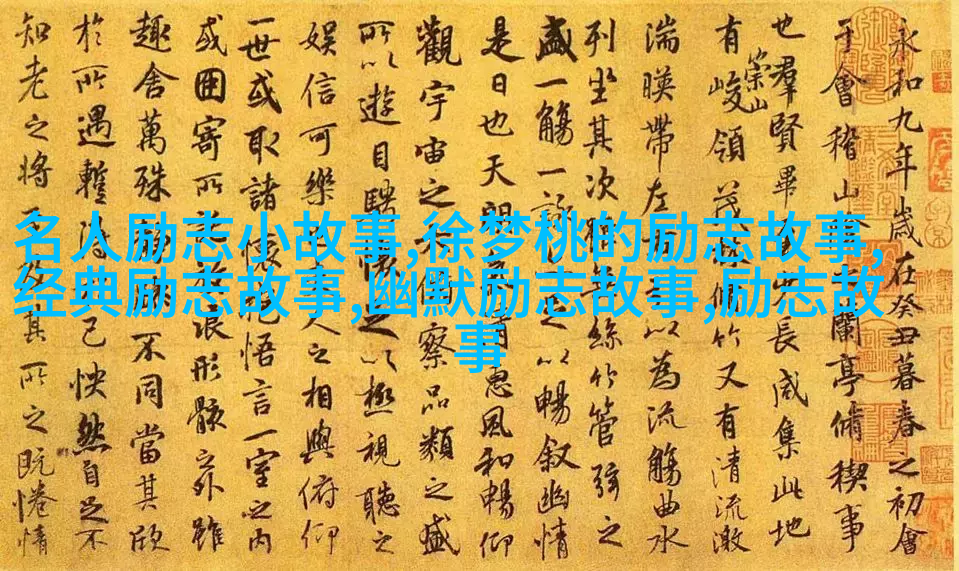 名人励志小故事,徐梦桃的励志故事,
经典励志故事,幽默励志故事,励志故
事
永和九年歲在癸丑暮春之初會
于會稽山蘭亭脩稧事
也羣賢畢至少長咸集此地
有崇山峻領茂林脩竹又有清流激
湍暎帶左右以為流觴曲水
列坐其次雖無絲竹管弦之
盛一觴一詠足以暢叙幽情
是日也天朗清惠風和暢仰
觀宇宙之大俯察品類之盛
所以遊目騁懷足以極視聽之
娛信可樂也夫人之相與俯仰
一世或取諸懷抱悟言一室之內
或因寄所放浪形骸之外雖
趣舍萬殊不同當其欣
於所遇蹔得己怏然自足不
知老之將至及其所之既惓情